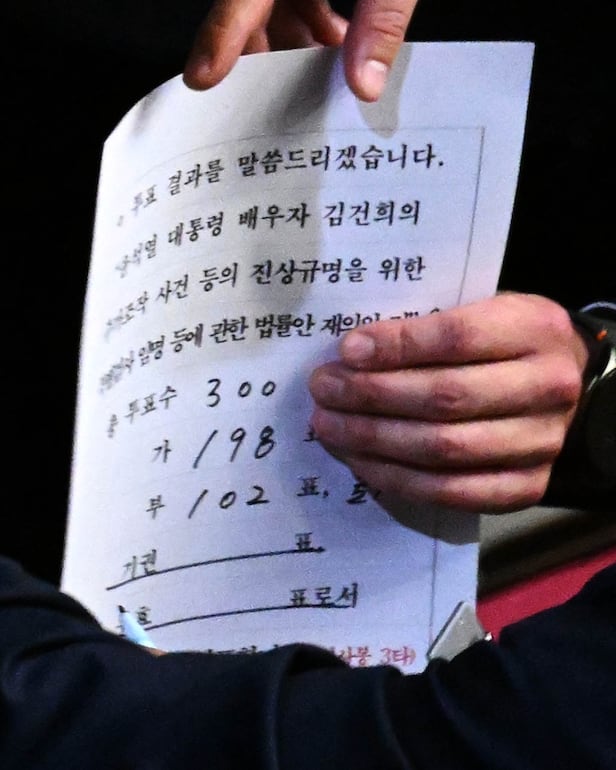 투표 결과를 말씀드리겠습니다.
윤석열 대통령 배우자 김건희의
사건 등의 진상규명을 위한
임명 등에 관한 법률안 재의의
총 투표수 300
가 198
부 102 표,
기권 표,
표로서
3타)